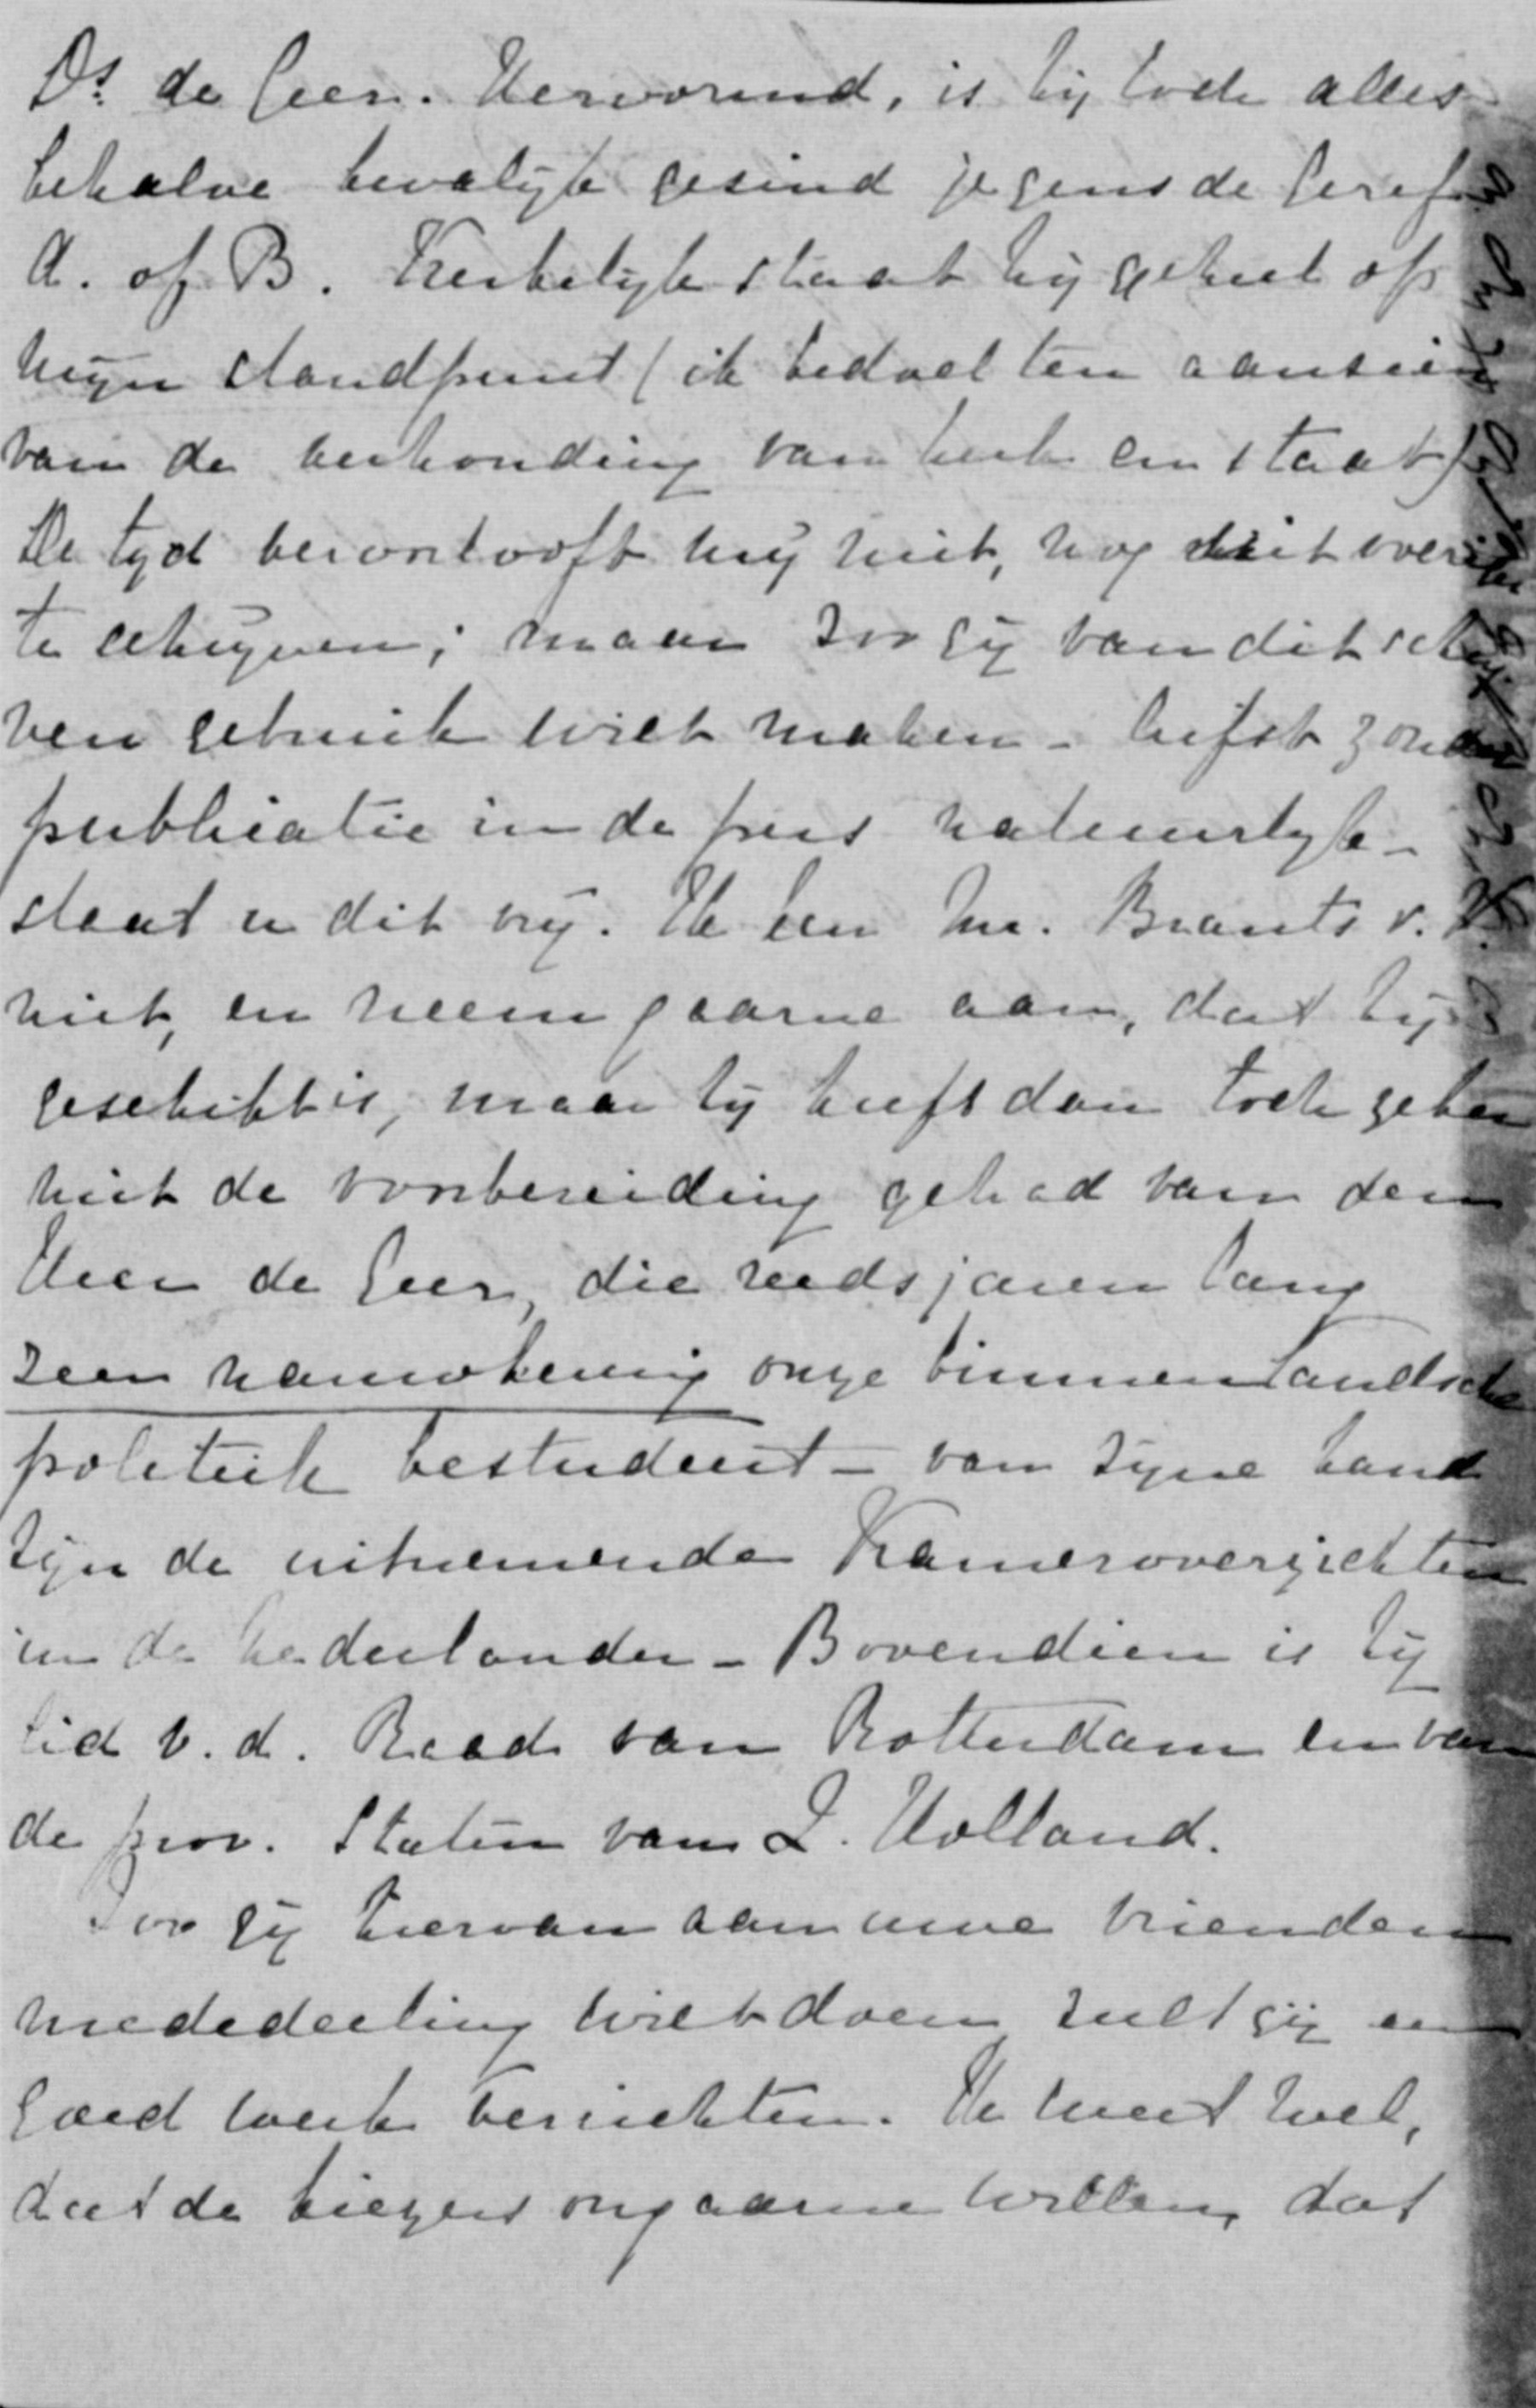 Ds de Geer. Hervormd, is hij toch alles
behalve kwalijk gezind jegens de Geref
A. of B. Kerkelijk staat hij geheel op
mijn standpunt (ik bedoel ten aanzien
van de verhouding van kerk en staat)
De tijd veroorlooft mij niet, nog
te schrijven; maar zoo gij van dit schrij
ven gebruik wilt maken - liefst zonder
publicatie in de pers natuurlijk -
staat u dit vrij. Ik ken Mr. Brants v.
niet, en neem gaarne aan, dat hij
geschikt is, maar hij heeft dan toch geheel
niet de voorbereiding gehad van den
Heer de Geer, die reeds jaren lang
zeer nauwkeurig onze binnenlandsche
politiek bestudeert - van zijne hand
zijn de uitnemende Kameroverzichten
in de Nederlander - Bovendien is hij
lid v. d. Raad van Rotterdam en van
de prov. Staten van Z. Holland.
Zoo gij hiervan aan uwe vrienden
mededeeling wilt doen zult gij een
goed werk verrichten. Ik weet wel,
dat de kiezers ongaarne willen, dat